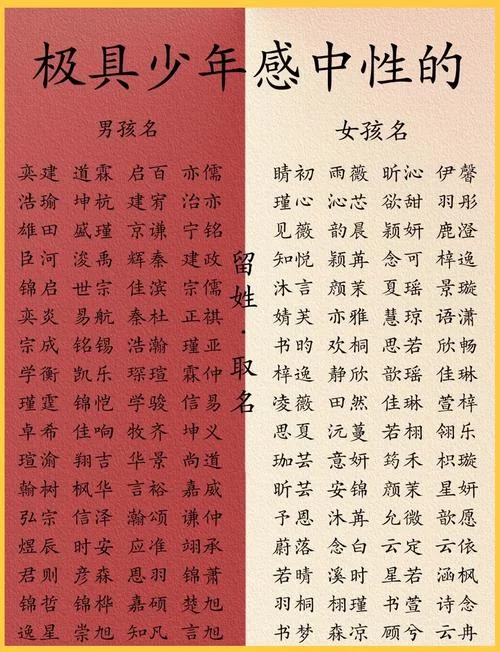 极具少年感中性的
男孩名
奕建 道霖 启百 亦儒
浩瑜 坤杭 建宥 治亦
雄田 盛瑾 京谦 宁铭
臣河 浚禹 辉秦 建政
锦启 世宗 佳滨 宗儒
奕炎 易航 秦杜 正祺
宗成 铭锡 浩瀚 瑾亚
学衡 凯乐 琛瑄 霖仲
瑾霆 锦恺 学骏 信易
卓希 佳响 牧齐 坤义
瑄渝 翔吉 华景 尚道
翰树 枫华 言裕 嘉威
弘宗 信泽 瀚颂 谦仲
煜辰 时安 应准 翊承
君则 彦森 思羽 锦萧
锦哲 锦桦 嘉硕 楚旭
逸星 崇旭 知凡 言旭
留姓·取名
女孩名
睛初 雨薇 昕沁 伊馨
瑾心 沁芯 欲甜 羽彤
见薇 韵晨 颖妍 鹿澄
知悦 颖苒 念可 梓逸
沐言 颜茉 夏瑶 景璇
婧芙 亦雅 慧琼 语潇
书昀 欢桐 思若 欣畅
梓逸 静欣 歆瑶 佳琳
凌薇 田然 佳琳 萱梓
思夏 沅蔓 若栩 翎乐
珈芸 意妍 筠禾 枳璇
昕芸 安锦 颜茉 星妍
予恩 沐苒 允微 歆愿
蔚落 念白 云定 云依
若晴 溪时 星若 涵枫
羽桐 栩瑾 书萱 诗念
书梦 森凉 顾兮 云冉